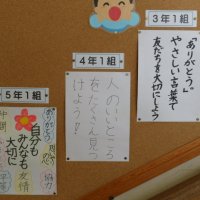 3年1組
「ありがとう。」
やさしい言葉で
友だちを大切にしよう
4年1組
人のいいところ
をたくさん見つ
けよう!!
5年1組
自分も
みんなも
大切に
友情
協力
仲間
平等